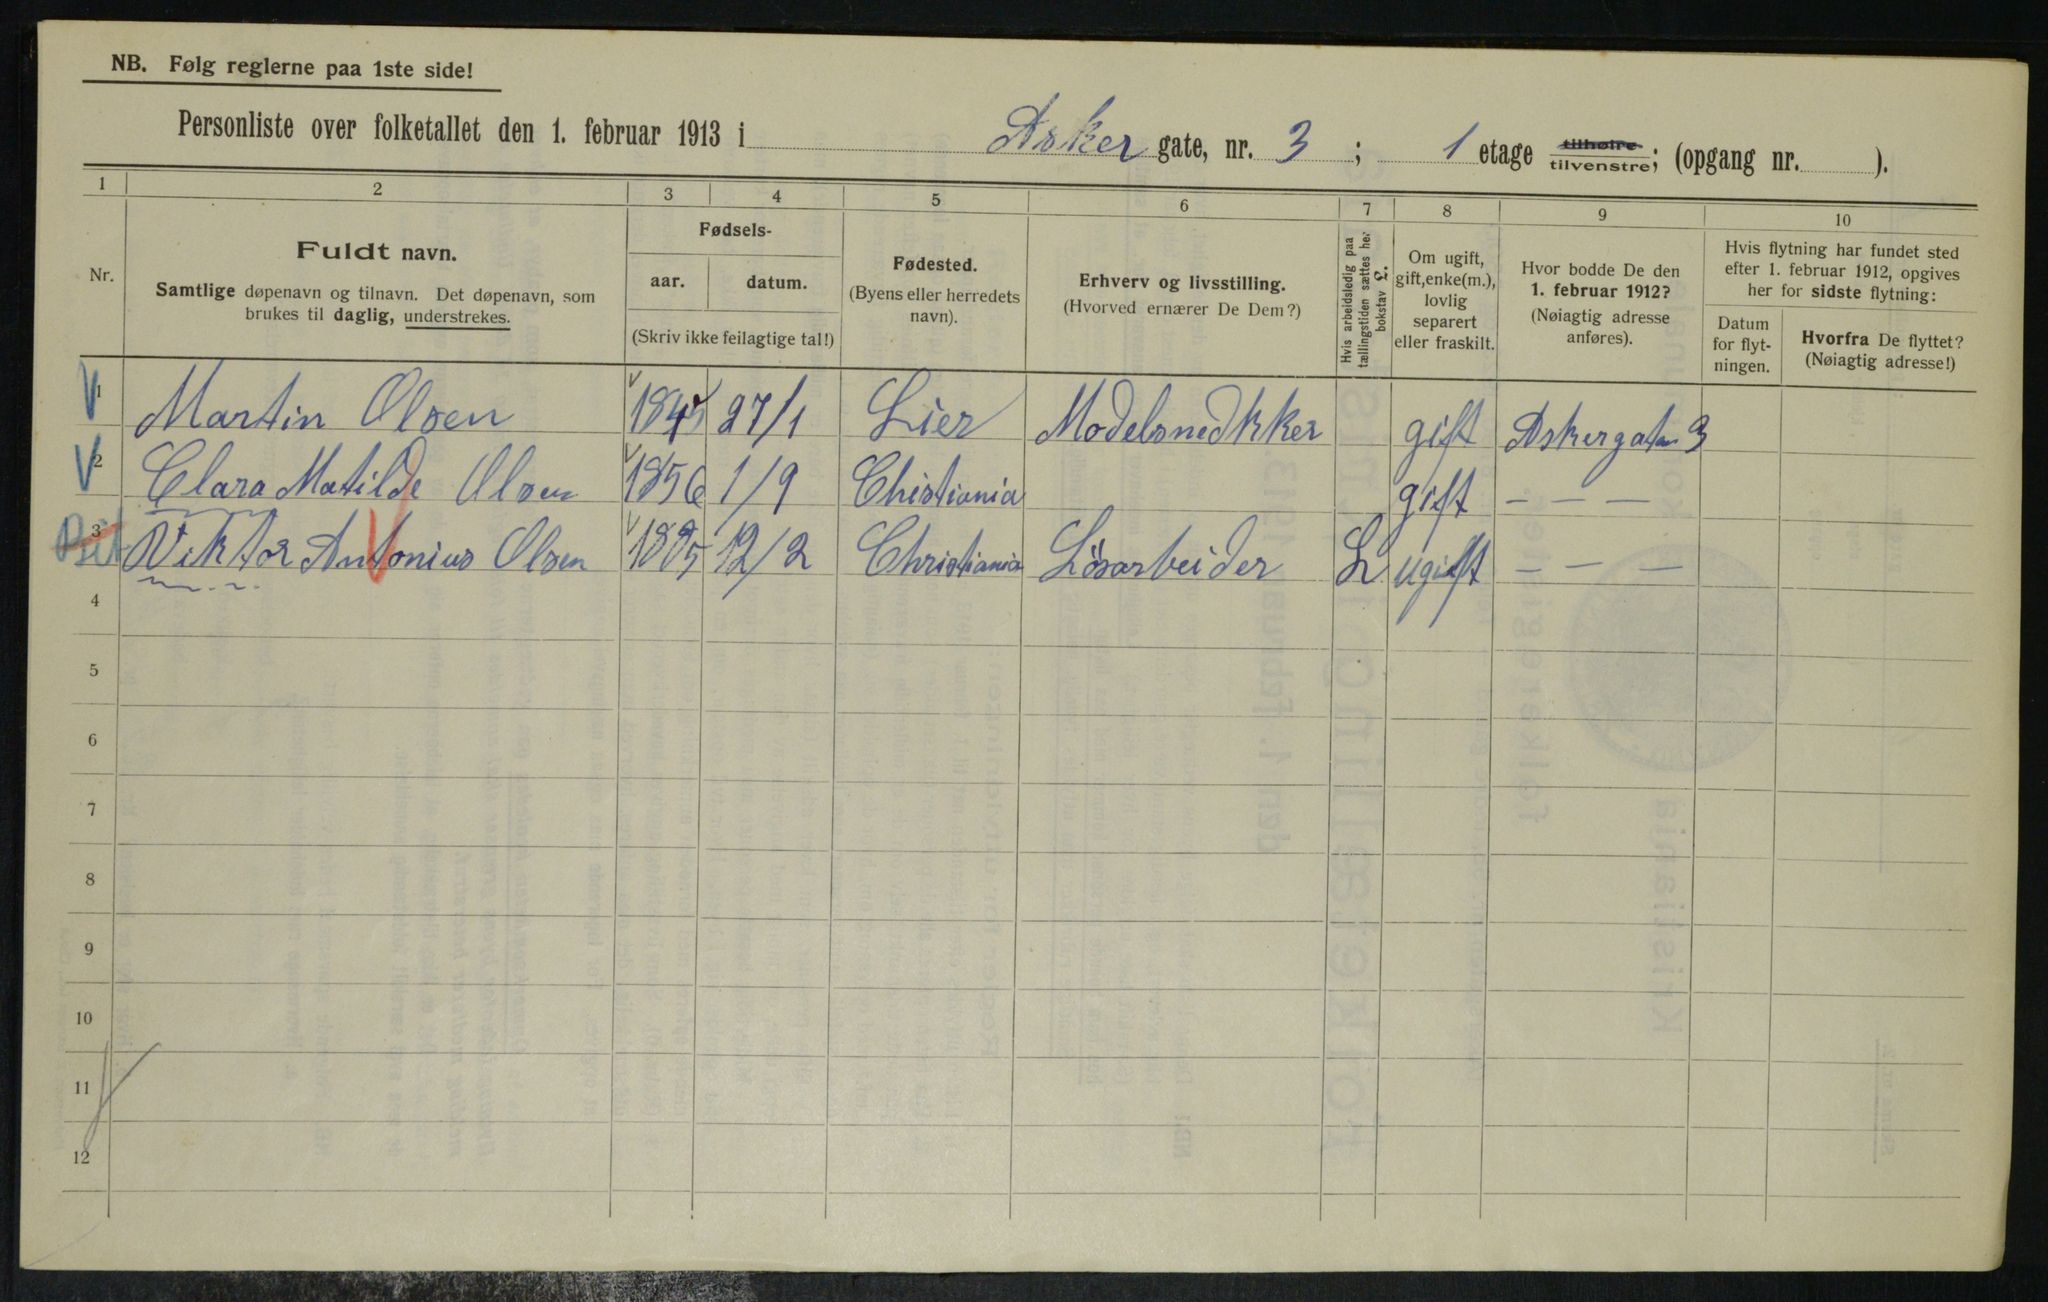 NB. Følg reglerne paa 1ste side!
Personliste over folketallet den 1. februar 1913 i Asker gate, nr. 3 ; 1 etage tilhøire tilvenstre; (opgang nr. ).
1 2 3 4 5 6 7 8 9 10
Nr.
Fuldt navn.
Samtlige døpenavn og tilnavn. Det døpenavn, som
brukes til daglig, understrekes.
Fødsels-
aar. datum.
(Skriv ikke feilagtige tal!)
Fødested.
(Byens eller herredets
navn).
Erhverv og livsstilling.
(Hvorved ernærer De Dem?)
Hvis arbeidsledig paa
tællingstiden sættes her
bokstav L.
Om ugift,
gift, enke(m.),
lovlig
separert
eller fraskilt.
Hvor bodde De den
1. februar 1912?
(Nøiagtig adresse
anføres).
Hvis flytning har fundet sted
efter 1. februar 1912, opgives
her for sidste flytning:
Datum
for flyt-
ningen.
Hvorfra De flyttet?
(Nøiagtig adresse!)
V 1 Martin Olsen 27/1 Lier Modelsnedkker gift Askergaten 3
V 2 Clara Matilde Olsen 1856 1/9 Chistiania gift — — —
3 Viktor Antonius Olsen 1885 12/2 Christiania Lösarbeider L ugift — — —
4
5
6
7
8
9
10
11
12